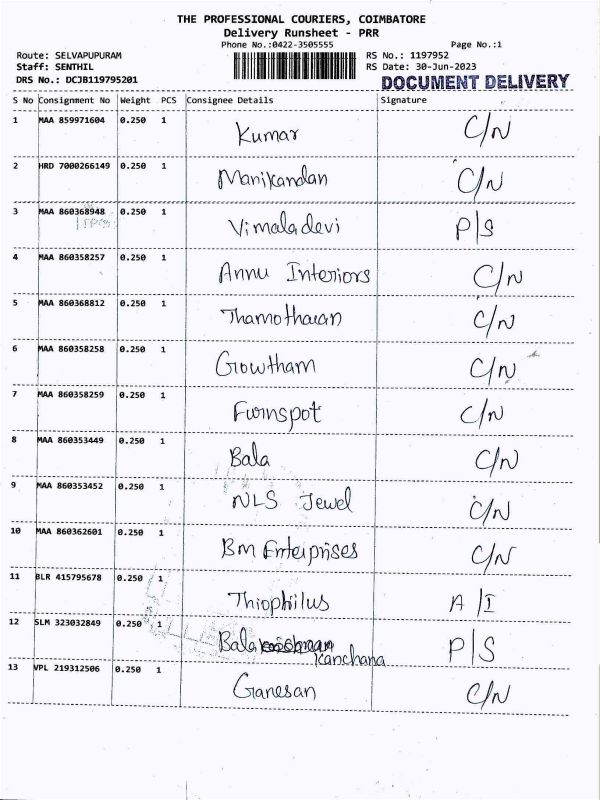 THE PROFESSIONAL COURIERS, COIMBATORE
Delivery Runsheet - PRR
Phone No.:0422-3505555 Page No.:1
Route: SELVAPUPURAM RS No.: 1197952
Staff: SENTHIL RS Date: 30-Jun-2023
DRS No.: DCJB119795201 DOCUMENT DELIVERY
S No Consignment No Weight PCS Consignee Details Signature
1 MAA 859971604 0.250 1 Kumar C/N
2 HRD 7000266149 0.250 1 Manikandan C/N
3 MAA 860368948 0.250 1 Vimaladevi P/S
4 MAA 860358257 0.250 1 Annu Interiors C/N
5 MAA 860368812 0.250 1 Thamotharan C/N
6 MAA 860358258 0.250 1 Gowtham C/N
7 MAA 860358259 0.250 1 Furnspot C/N
8 MAA 860353449 0.250 1 Bala C/N
9 MAA 860353452 0.250 1 NLS Jewel C/N
10 MAA 860362601 0.250 1 Bm Enterprises C/N
11 BLR 415795678 0.250 1 Thiophilus A/I
12 SLM 323032849 0.250 1 Bala Kanchana P/S
13 VPL 219312506 0.250 1 Ganesan C/N